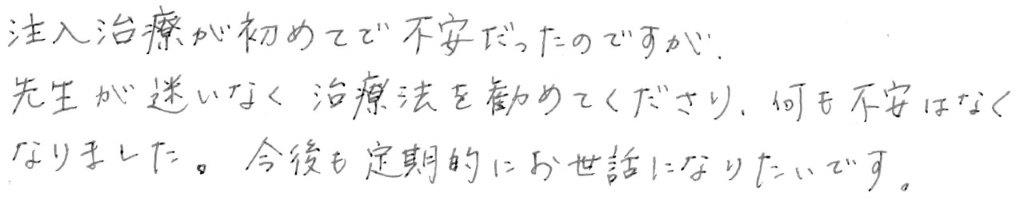 注入治療が初めてで不安だったのですが、
先生が迷いなく治療法を勧めてくださり、何も不安はなく
なりました。今後も定期的にお世話になりたいです。